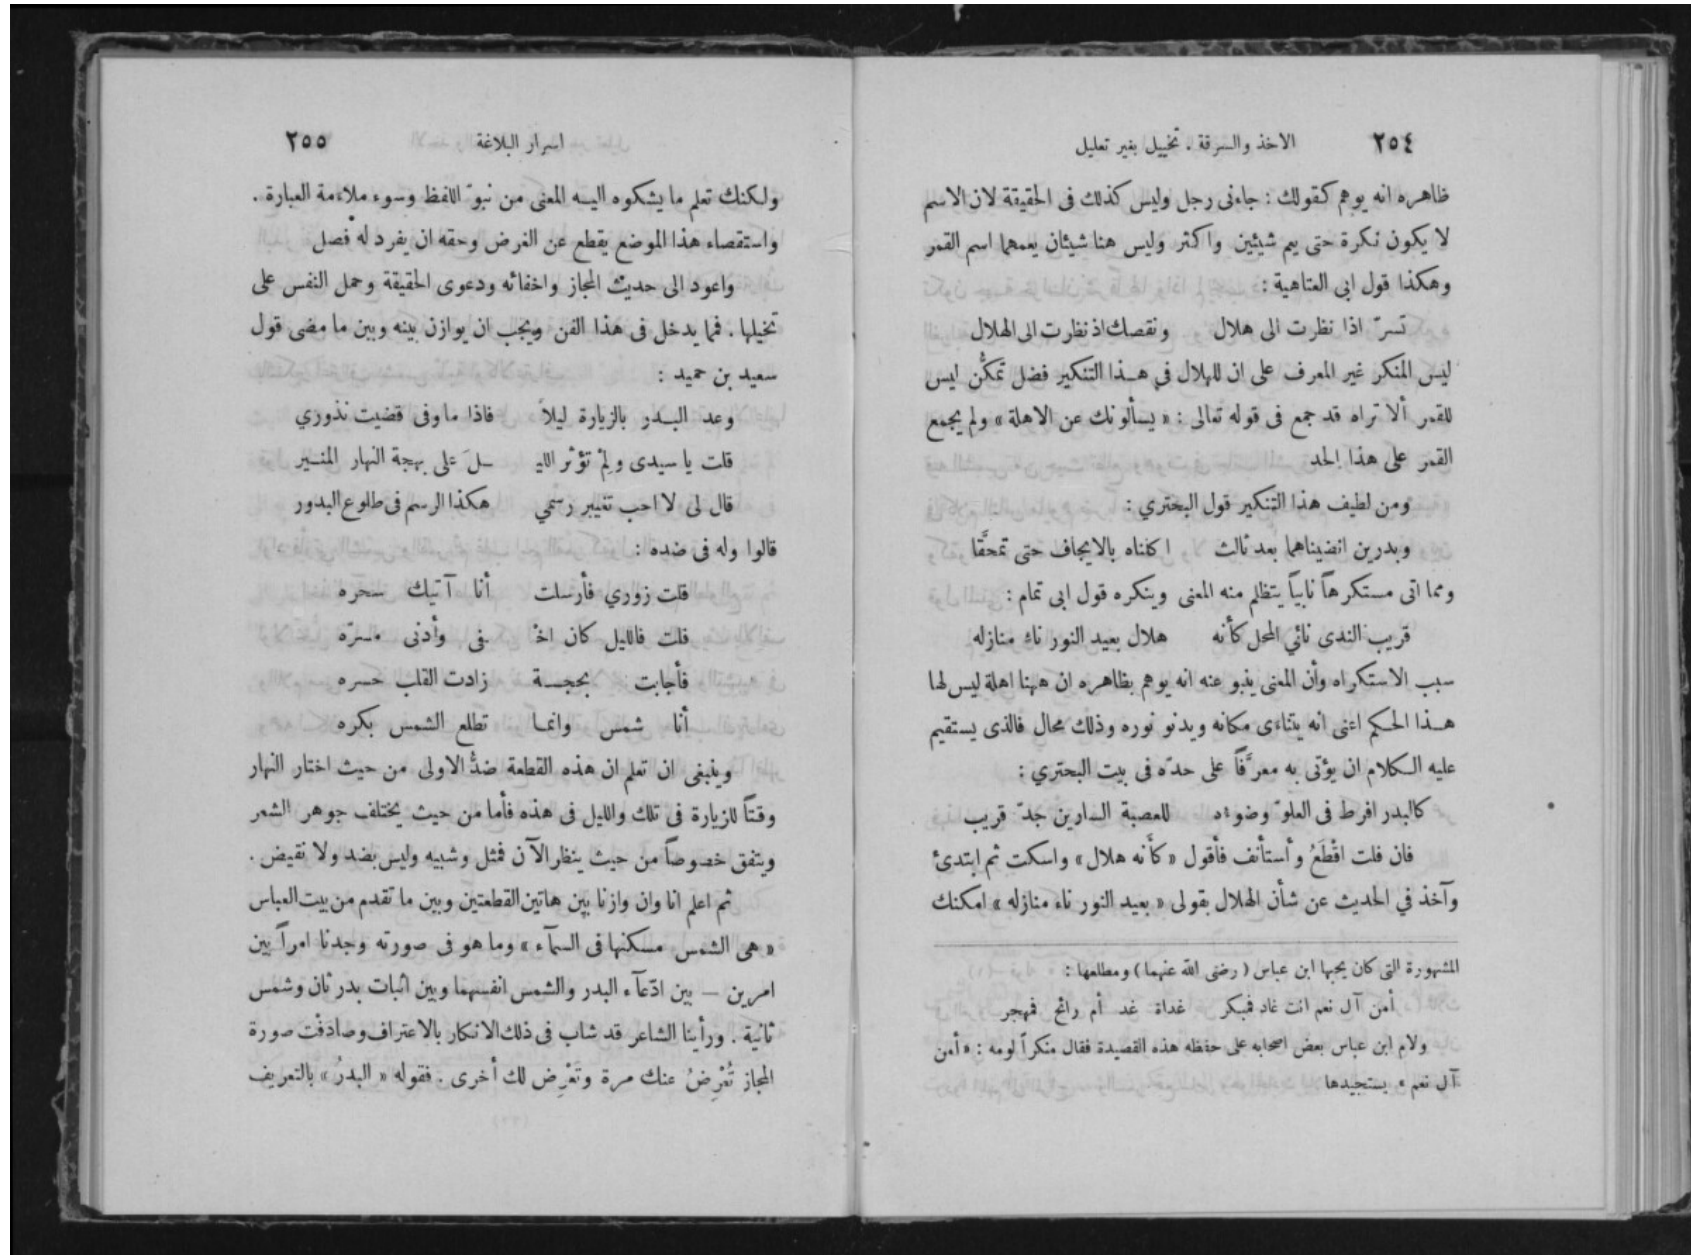 ٢٥٤ الاخذ والسرقة . تخييل بغير تعليل
ظاهره انه يوهم كقولك : جاءنى رجل وليس كذلك فى الحقيقة لان الاسم
لا يكون نكرة حتى يعم شيئين واكثر وليس هنا شيئان يعمهما اسم القمر
وهكذا قول ابى العتاهية :
تسرّ اذا نظرت الى هلال ونقصك اذ نظرت الى الهلال
ليس المنكر غير المعرف على ان للهلال في هذا التنكير فضل تمكّن ليس
للقمر ألا تراه قد جمع فى قوله تعالى : « يسألونك عن الاهلة » ولم يجمع
القمر على هذا الحد
ومن لطيف هذا التنكير قول البحتري :
وبدرين انضيناهما بعد ثالث اكلناه بالايجاف حتى تمحَّقا
ومما اتى مستكرهاً نابياً يتظلم منه المعنى وينكره قول ابى تمام :
قريب الندى نائي المحل كأنه هلال بعيد النور ناء منازله
سبب الاستكراه وأن المعنى ينبو عنه انه يوهم بظاهره ان ههنا اهلة ليس لها
هذا الحكم اعنى انه يتناءى مكانه ويدنو نوره وذلك محال فالذى يستقيم
عليه الكلام ان يؤتى به معرَّفاً على حدّه فى بيت البحتري :
كالبدر افرط فى العلوّ وضوءه للعصبة السارين جدّ قريب
فان قلت اقْطَعُ وأستأنف فأقول « كأنه هلال » واسكت ثم ابتدئ
وآخذ في الحديث عن شأن الهلال بقولى « بعيد النور ناء منازله » امكنك
المشهورة التى كان يحبها ابن عباس ( رضى الله عنهما ) ومطلعها :
أمن آل نعم انت غاد فمبكر غداة غد أم رائح فمهجر
ولام ابن عباس بعض اصحابه على حفظه هذه القصيدة فقال منكراً لومه : « أمن
آل نعم » يستجيدها
اسرار البلاغة ٢٥٥
ولكنك تعلم ما يشكوه اليه المعنى من نبوّ اللفظ وسوء ملاءمة العبارة .
واستقصاء هذا الموضع يقطع عن الغرض وحقه ان يفرد له فصل
واعود الى حديث المجاز واخفائه ودعوى الحقيقة وحمل النفس على
تخيلها . فمما يدخل فى هذا الفن ويجب ان يوازن بينه وبين ما مضى قول
سعيد بن حميد :
وعد البدر بالزيارة ليلاً فاذا ما وفى قضيت نذوري
قلت يا سيدى ولِمْ تؤثر الليـ ـلَ على بهجة النهار المنير
قال لى لا احب تغيير رسمي هكذا الرسم فى طلوع البدور
قالوا وله فى ضده :
قلت زوري فأرسلت أنا آتيك سحره
قلت فالليل كان اخـ ـفى وأدنى مسرّه
فأجابت بحجة زادت القلب حسره
أنا شمس وانما تطلع الشمس بكره
وينبغى ان تعلم ان هذه القطعة ضدُّ الاولى من حيث اختار النهار
وقتاً للزيارة فى تلك والليل فى هذه فأما من حيث يختلف جوهر الشعر
ويتفق خصوصاً من حيث ينظر الآن فمثل وشبيه وليس بضد ولا نقيض .
ثم اعلم انا وان وازنا بين هاتين القطعتين وبين ما تقدم من بيت العباس
« هى الشمس مسكنها فى السمآء » وما هو فى صورته وجدنا امراً بين
امرين — بين ادّعآء البدر والشمس انفسهما وبين اثبات بدر ثان وشمس
ثانية . ورأينا الشاعر قد شاب فى ذلك الانكار بالاعتراف وصادَفْت صورة
المجاز تُعْرِضُ عنك مرة وتَعْرِض لك أخرى . فقوله « البدرُ » بالتعريف